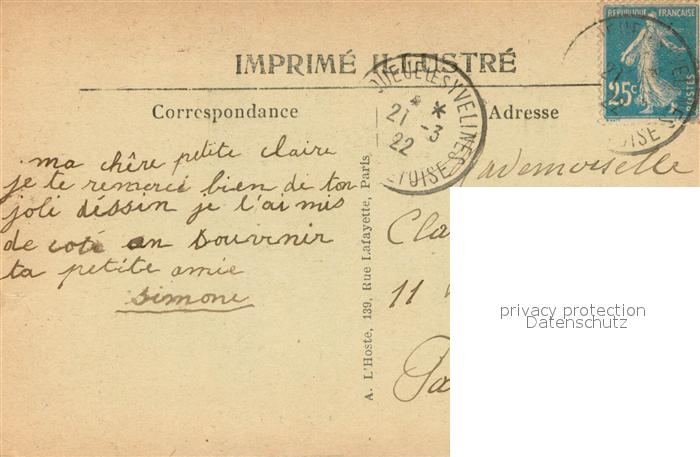 IMPRIMÉ ILLUSTRÉ
RÉPUBLIQUE FRANÇAISE
25c
POSTES
QUEUE LES YVELINES
21 -3
22
ET OISE
Correspondance
Adresse
ma chère petite claire
je te remercie bien de ton
joli déssin je l'ai mis
de coté en souvenir
ta petite amie
simone
A. L'Hoste, 139, Rue Lafayette, Paris
Mademoiselle
Cla
11
Pa
privacy protection
Datenschutz